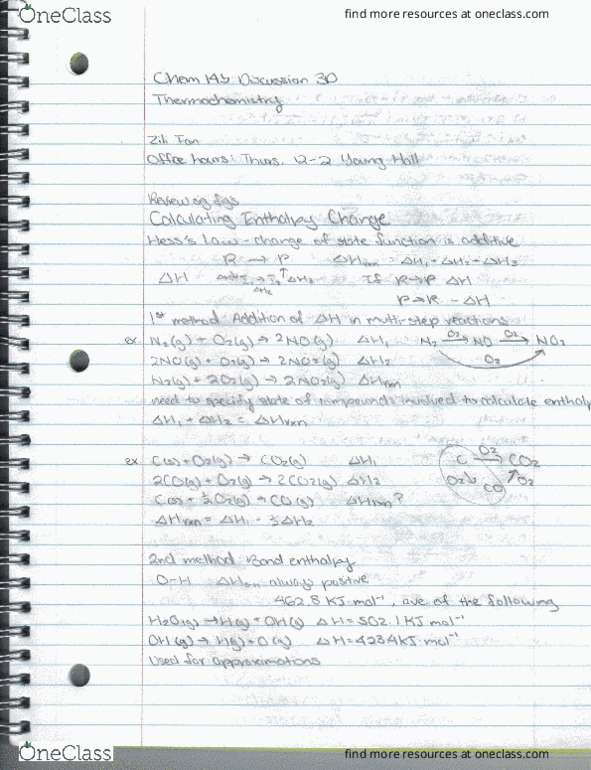 OneClass
find more resources at oneclass.com
Chem 14B Discussion 3D
Thermochemistry
Zili Fan
Office hours: Thurs. 12-2 Young Hall
Review of figs
Calculating Enthalpy Change
Hess's Law - change of state function is additive
R → P ΔHrxn = ΔH1 + ΔH2 + ΔH3
ΔH ΔH3 If R→P ΔH
ΔH2
P→R -ΔH
1st method: Addition of ΔH in multi-step reactions
ex. N2(g) + O2(g) → 2NO(g) ΔH1 N2 O2→ NO O2→ NO2
2NO(g) + O2(g) → 2NO2(g) ΔH2 O2
N2(g) + 2O2(g) → 2NO2(g) ΔHrxn
need to specify state of compounds involved to calculate enthalpy
ΔH1 + ΔH2 = ΔHrxn
ex. C(s) + O2(g) → CO2(g) ΔH1 C O2→ CO2
2CO(g) + O2(g) → 2CO2(g) ΔH2 O2 CO O2
C(s) + ½O2(g) → CO(g) ΔHrxn?
ΔHrxn = ΔH1 - ½ΔH2
2nd method: Bond enthalpy
O-H ΔH always positive
462.8 KJ·mol⁻¹, ave of the following
H2O(g) → H(g) + OH(g) ΔH = 502.1 KJ·mol⁻¹
OH(g) → H(g) + O(g) ΔH = 423.4 KJ·mol⁻¹
Used for approximations
OneClass
find more resources at oneclass.com